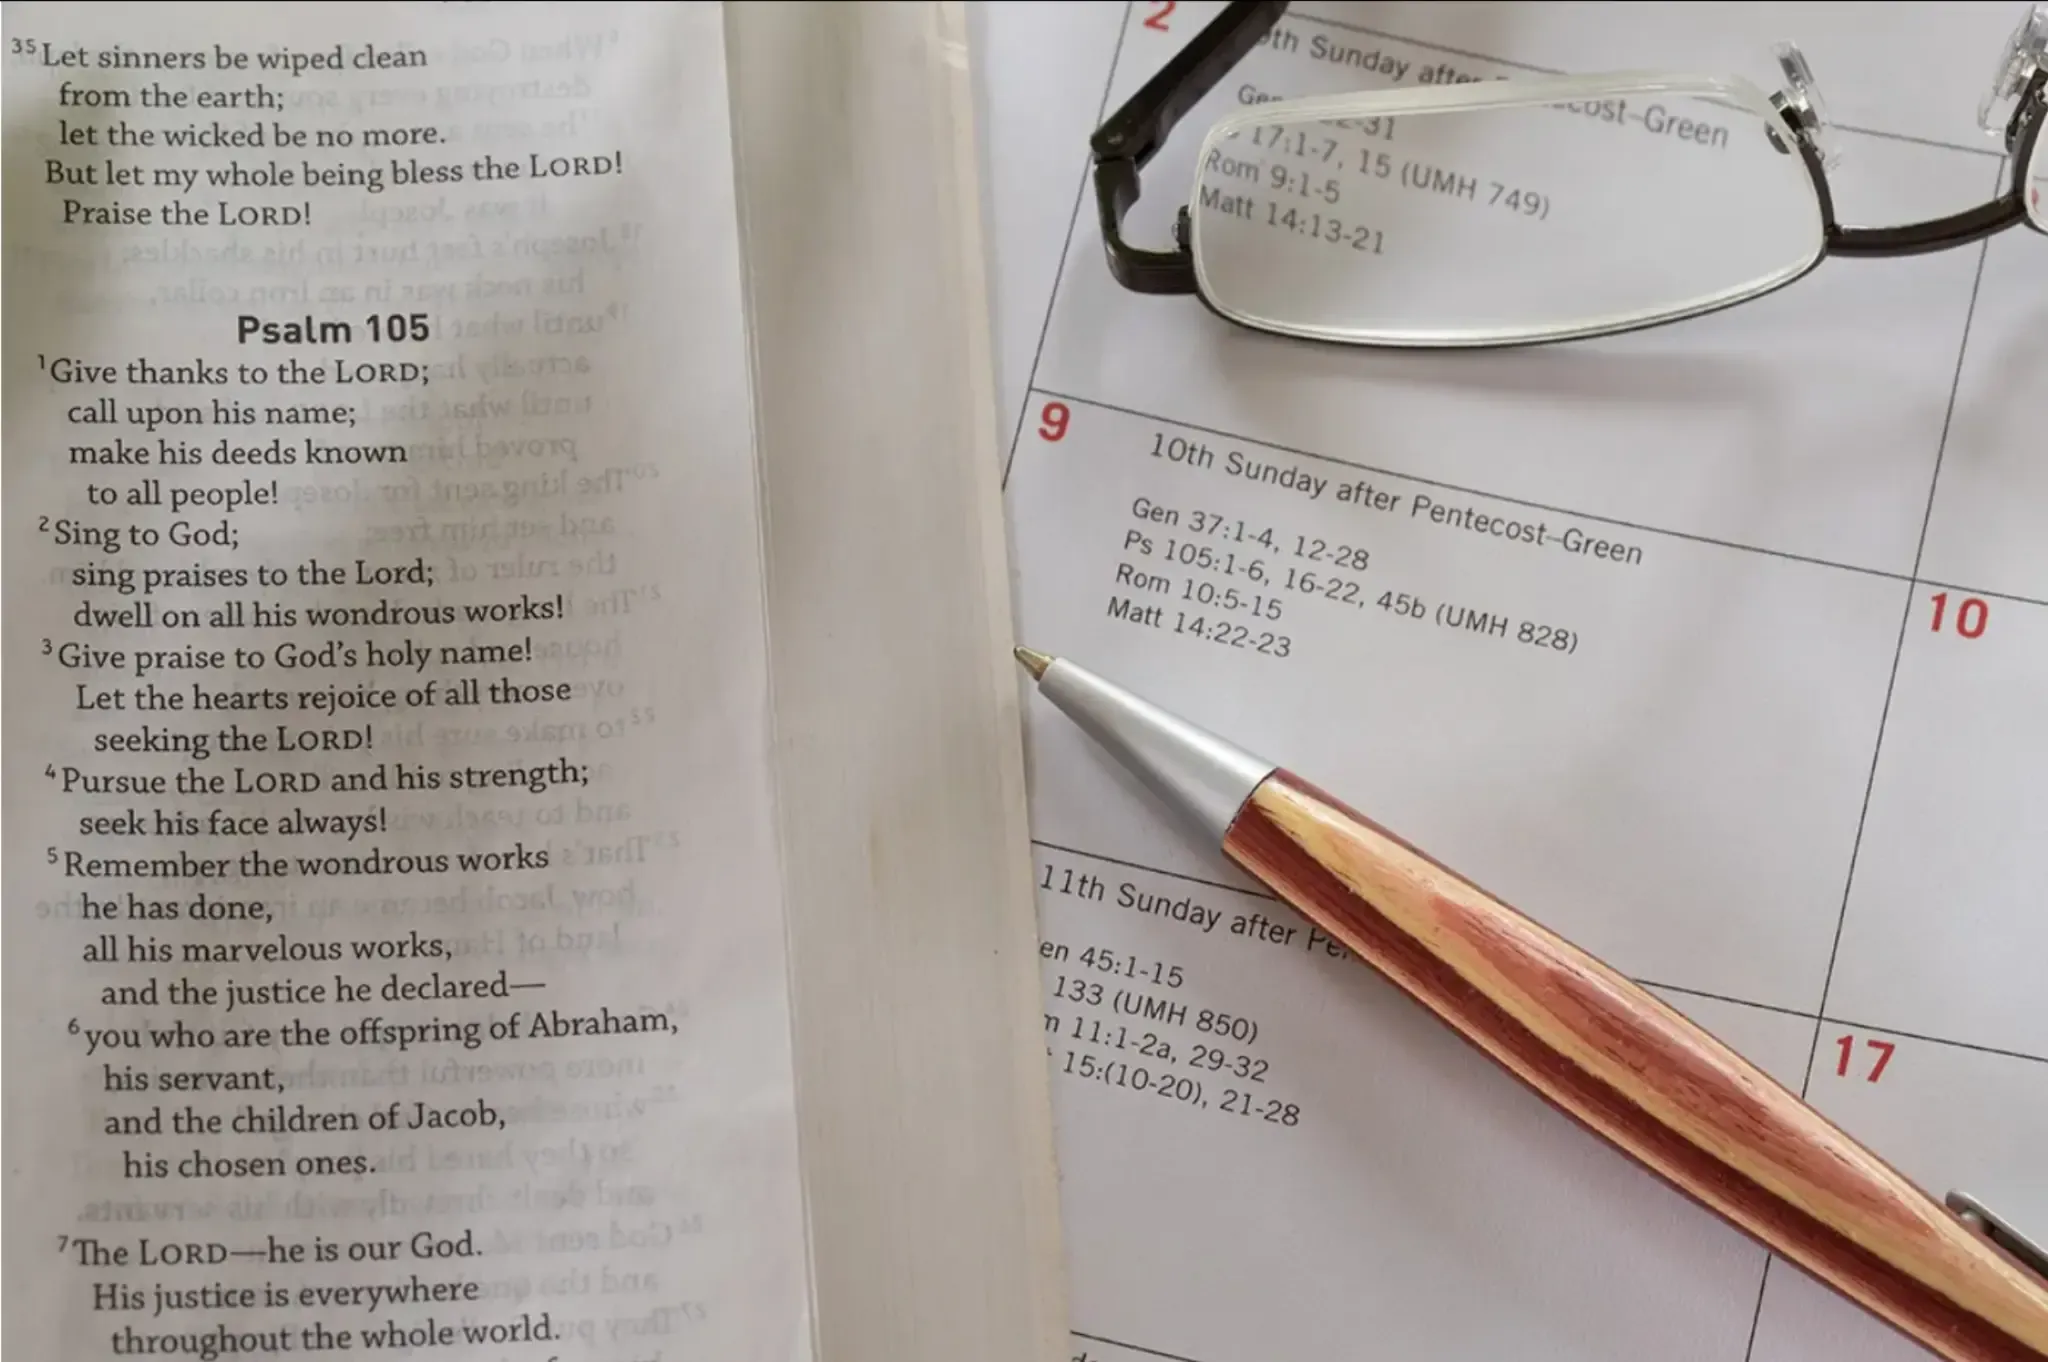 35 Let sinners be wiped clean
from the earth;
let the wicked be no more.
But let my whole being bless the LORD!
Praise the LORD!
Psalm 105
1 Give thanks to the LORD;
call upon his name;
make his deeds known
to all people!
2 Sing to God;
sing praises to the Lord;
dwell on all his wondrous works!
3 Give praise to God's holy name!
Let the hearts rejoice of all those
seeking the LORD!
4 Pursue the LORD and his strength;
seek his face always!
5 Remember the wondrous works
he has done,
all his marvelous works,
and the justice he declared—
6 you who are the offspring of Abraham,
his servant,
and the children of Jacob,
his chosen ones.
7 The LORD—he is our God.
His justice is everywhere
throughout the whole world.
2
Sunday after Pentecost–Green
31
17:1-7, 15 (UMH 749)
Rom 9:1-5
Matt 14:13-21
9
10th Sunday after Pentecost–Green
Gen 37:1-4, 12-28
Ps 105:1-6, 16-22, 45b (UMH 828)
Rom 10:5-15
Matt 14:22-23
10
11th Sunday after
45:1-15
133 (UMH 850)
11:1-2a, 29-32
15:(10-20), 21-28
17